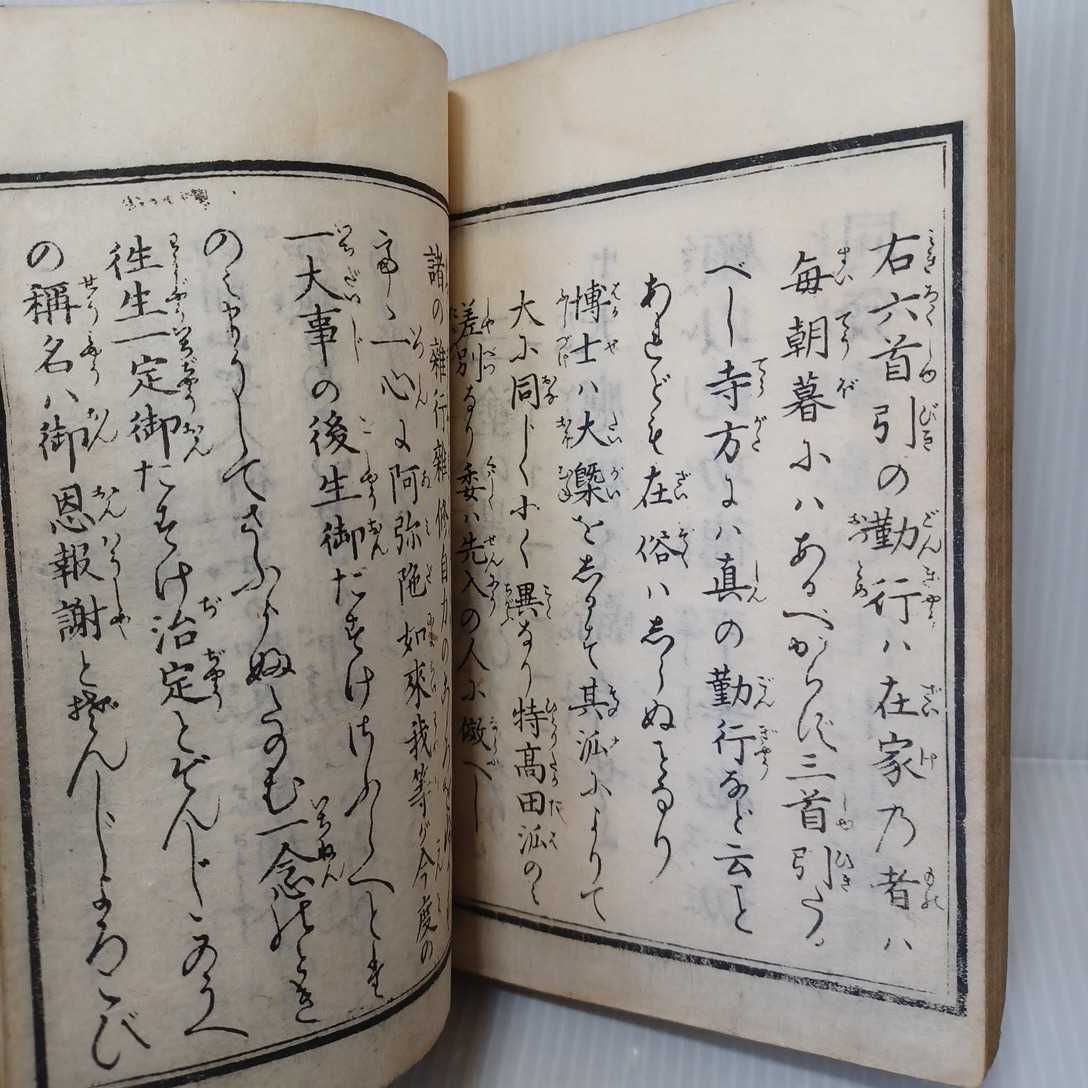 右六首引の勤行ハ在家乃者ハ
毎朝暮にハあるべからず三首引たる
べし寺方にハ真の勤行など云こと
あれども在俗ハしらぬことなり
博士ハ大槩をしるして其派によりて
大に同じく小く異なり特高田派のミ
差別なり委ハ先入の人に倣べし
諸の雜行雜修自力のこゝろを
一心に阿弥陀如來我等が今度の
一大事の後生御たすけさふらへとた
のみまうしてさふらふたのむ一念のとき
徃生一定御たすけ治定とぞんじこのうへ
の稱名ハ御恩報謝とぞんじよろこび